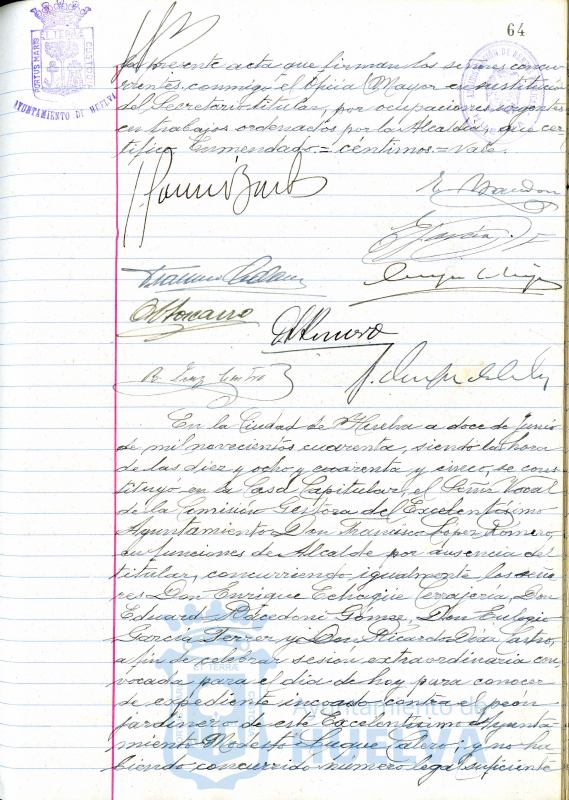 64
PORTUS MARIS ET TERRÆ CUSTODIA
AYUNTAMIENTO DE HUELVA
la presente acta que firman los señores concu-
rrentes, conmigo el Oficial Mayor en sustitución
del Secretario titular, por ocupaciones urgentes
en trabajos ordenados por la Alcaldía, que cer-
tifico. Enmendado = céntimos = Vale.
En la Ciudad de Huelva a doce de Junio
de mil novecientos cuarenta, siendo la hora
de las diez y ocho y cuarenta y cinco, se cons-
tituyó en la Casa Capitular, el Señor Vocal
de la Comisión Gestora del Excelentísimo
Ayuntamiento Don Francisco López Romero,
en funciones de Alcalde por ausencia del
titular, concurriendo igualmente los seño-
res Don Enrique Echagüe Cerrajería, Don
Eduardo Gómez, Don Eulogio
García Ferrer y Don Ricardo Díaz Castro,
a fin de celebrar sesión extraordinaria con-
vocada para el día de hoy para conocer
de expediente incoado contra el peón
jardinero de este Excelentísimo Ayunta-
miento Modesto Luque Calero; y no ha-
biendo concurrido número legal suficiente
Ayuntamiento de
HUELVA